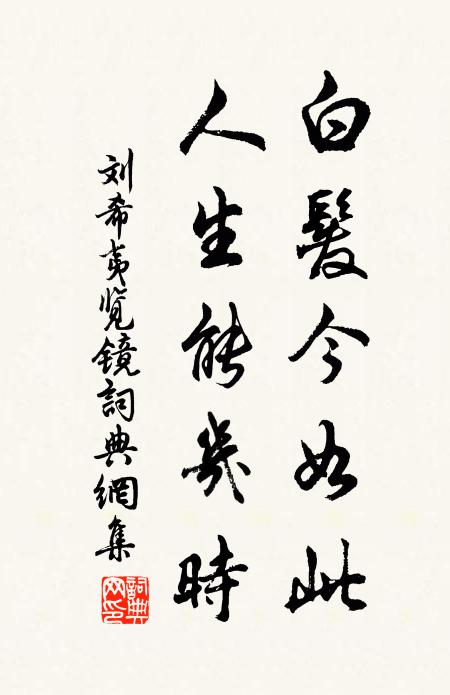 白髮今如此
人生能幾時
刘希夷览镜詞典網集
詞典网印